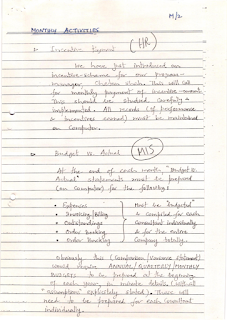 M/2
MONTHLY ACTIVITIES
1- Incentive Payment (HR)
We have just introduced an
incentive scheme for our Program-
Manager, This will call
for monthly payment of incentive amount
This should be studied carefully &
implemented. All records (of performance
& incentives earned) must be maintained
on Computer.
2- Budget vs. Actual (MIS)
At the end of each month, "Budget vs.
Actual" statements must be prepared
(on Computer) for the following:
• Expenses Must be "Budgeted"
• Invoicing/Billing & Compiled for each
• Outstandings Committed individually
• Order Booking & for the entire
• Order Backlog Company totally.
Obviously this (Comparison/Variance statement)
would require ANNUAL/QUARTERLY/MONTHLY
BUDGETS to be prepared at the beginning
of each year, in minute details (with all
"assumptions" explicitly stated). These will
need to be prepared for each
individually.